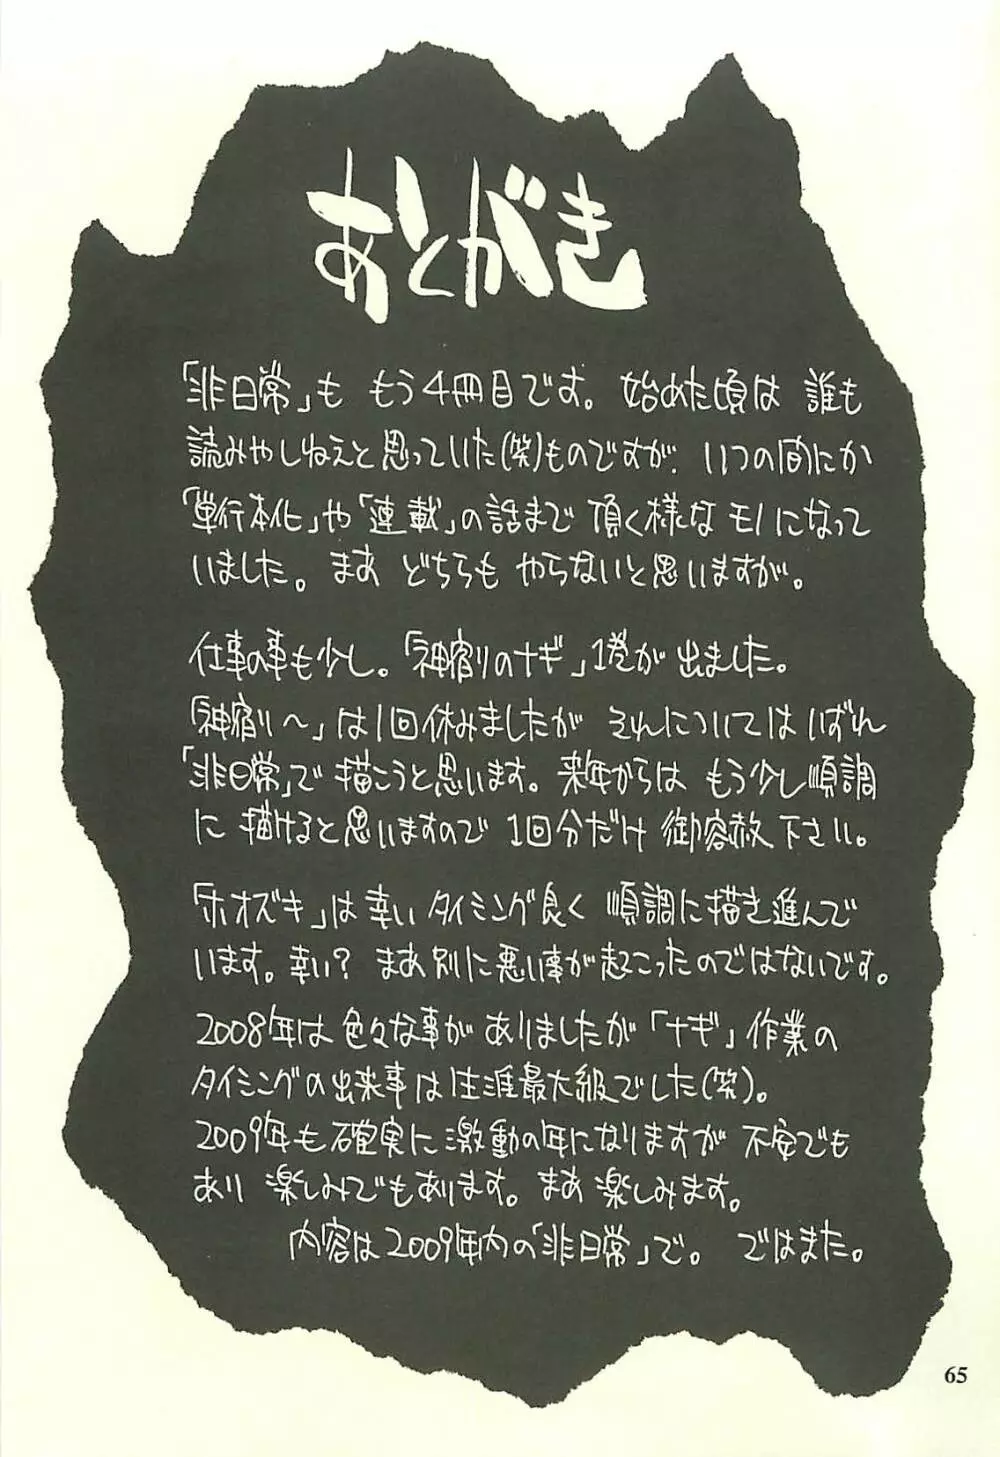 あとがき
「非日常」も もう4冊目です。始めた頃は 誰も
読みやしねえと思っていた(笑)ものですが、いつの間にか
「単行本化」や「連載」の話まで 頂く様なモノになって
いました。まあ どちらも やらないと思いますが。
仕事の事も少し。「神宿りのナギ」1巻が 出ました。
「神宿り〜」は1回休みましたが それについてはいずれ
「非日常」で 描こうと思います。来年からは もう少し順調
に 描けると思いますので 1回分だけ 御容赦下さい。
「ホオズキ」は幸い タイミング良く 順調に描き進んで
います。幸い? まあ別に悪い事が起こったのではないです。
2008年は 色々な事が ありましたが「ナギ」作業の
タイミングの出来事は生涯最大級でした(笑)。
2009年も確実に激動の年になりますが 不安でも
あり 楽しみでもあります。まあ 楽しみます。
内容は2009年内の「非日常」で。 ではまた。
65